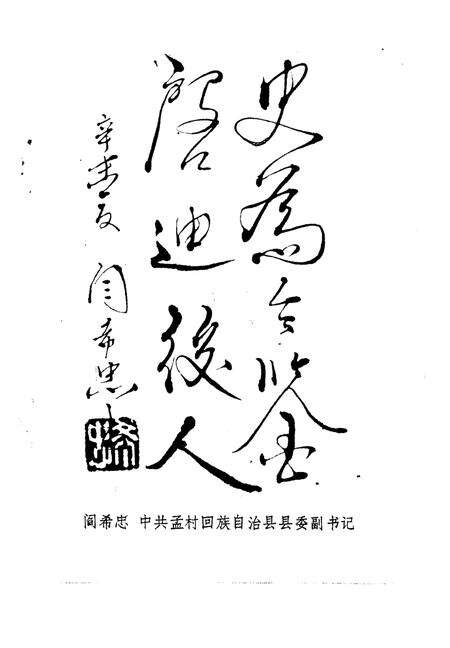 史為今鑒
啓迪後人
辛未夏
闫希忠
阎希忠 中共孟村回族自治县县委副书记